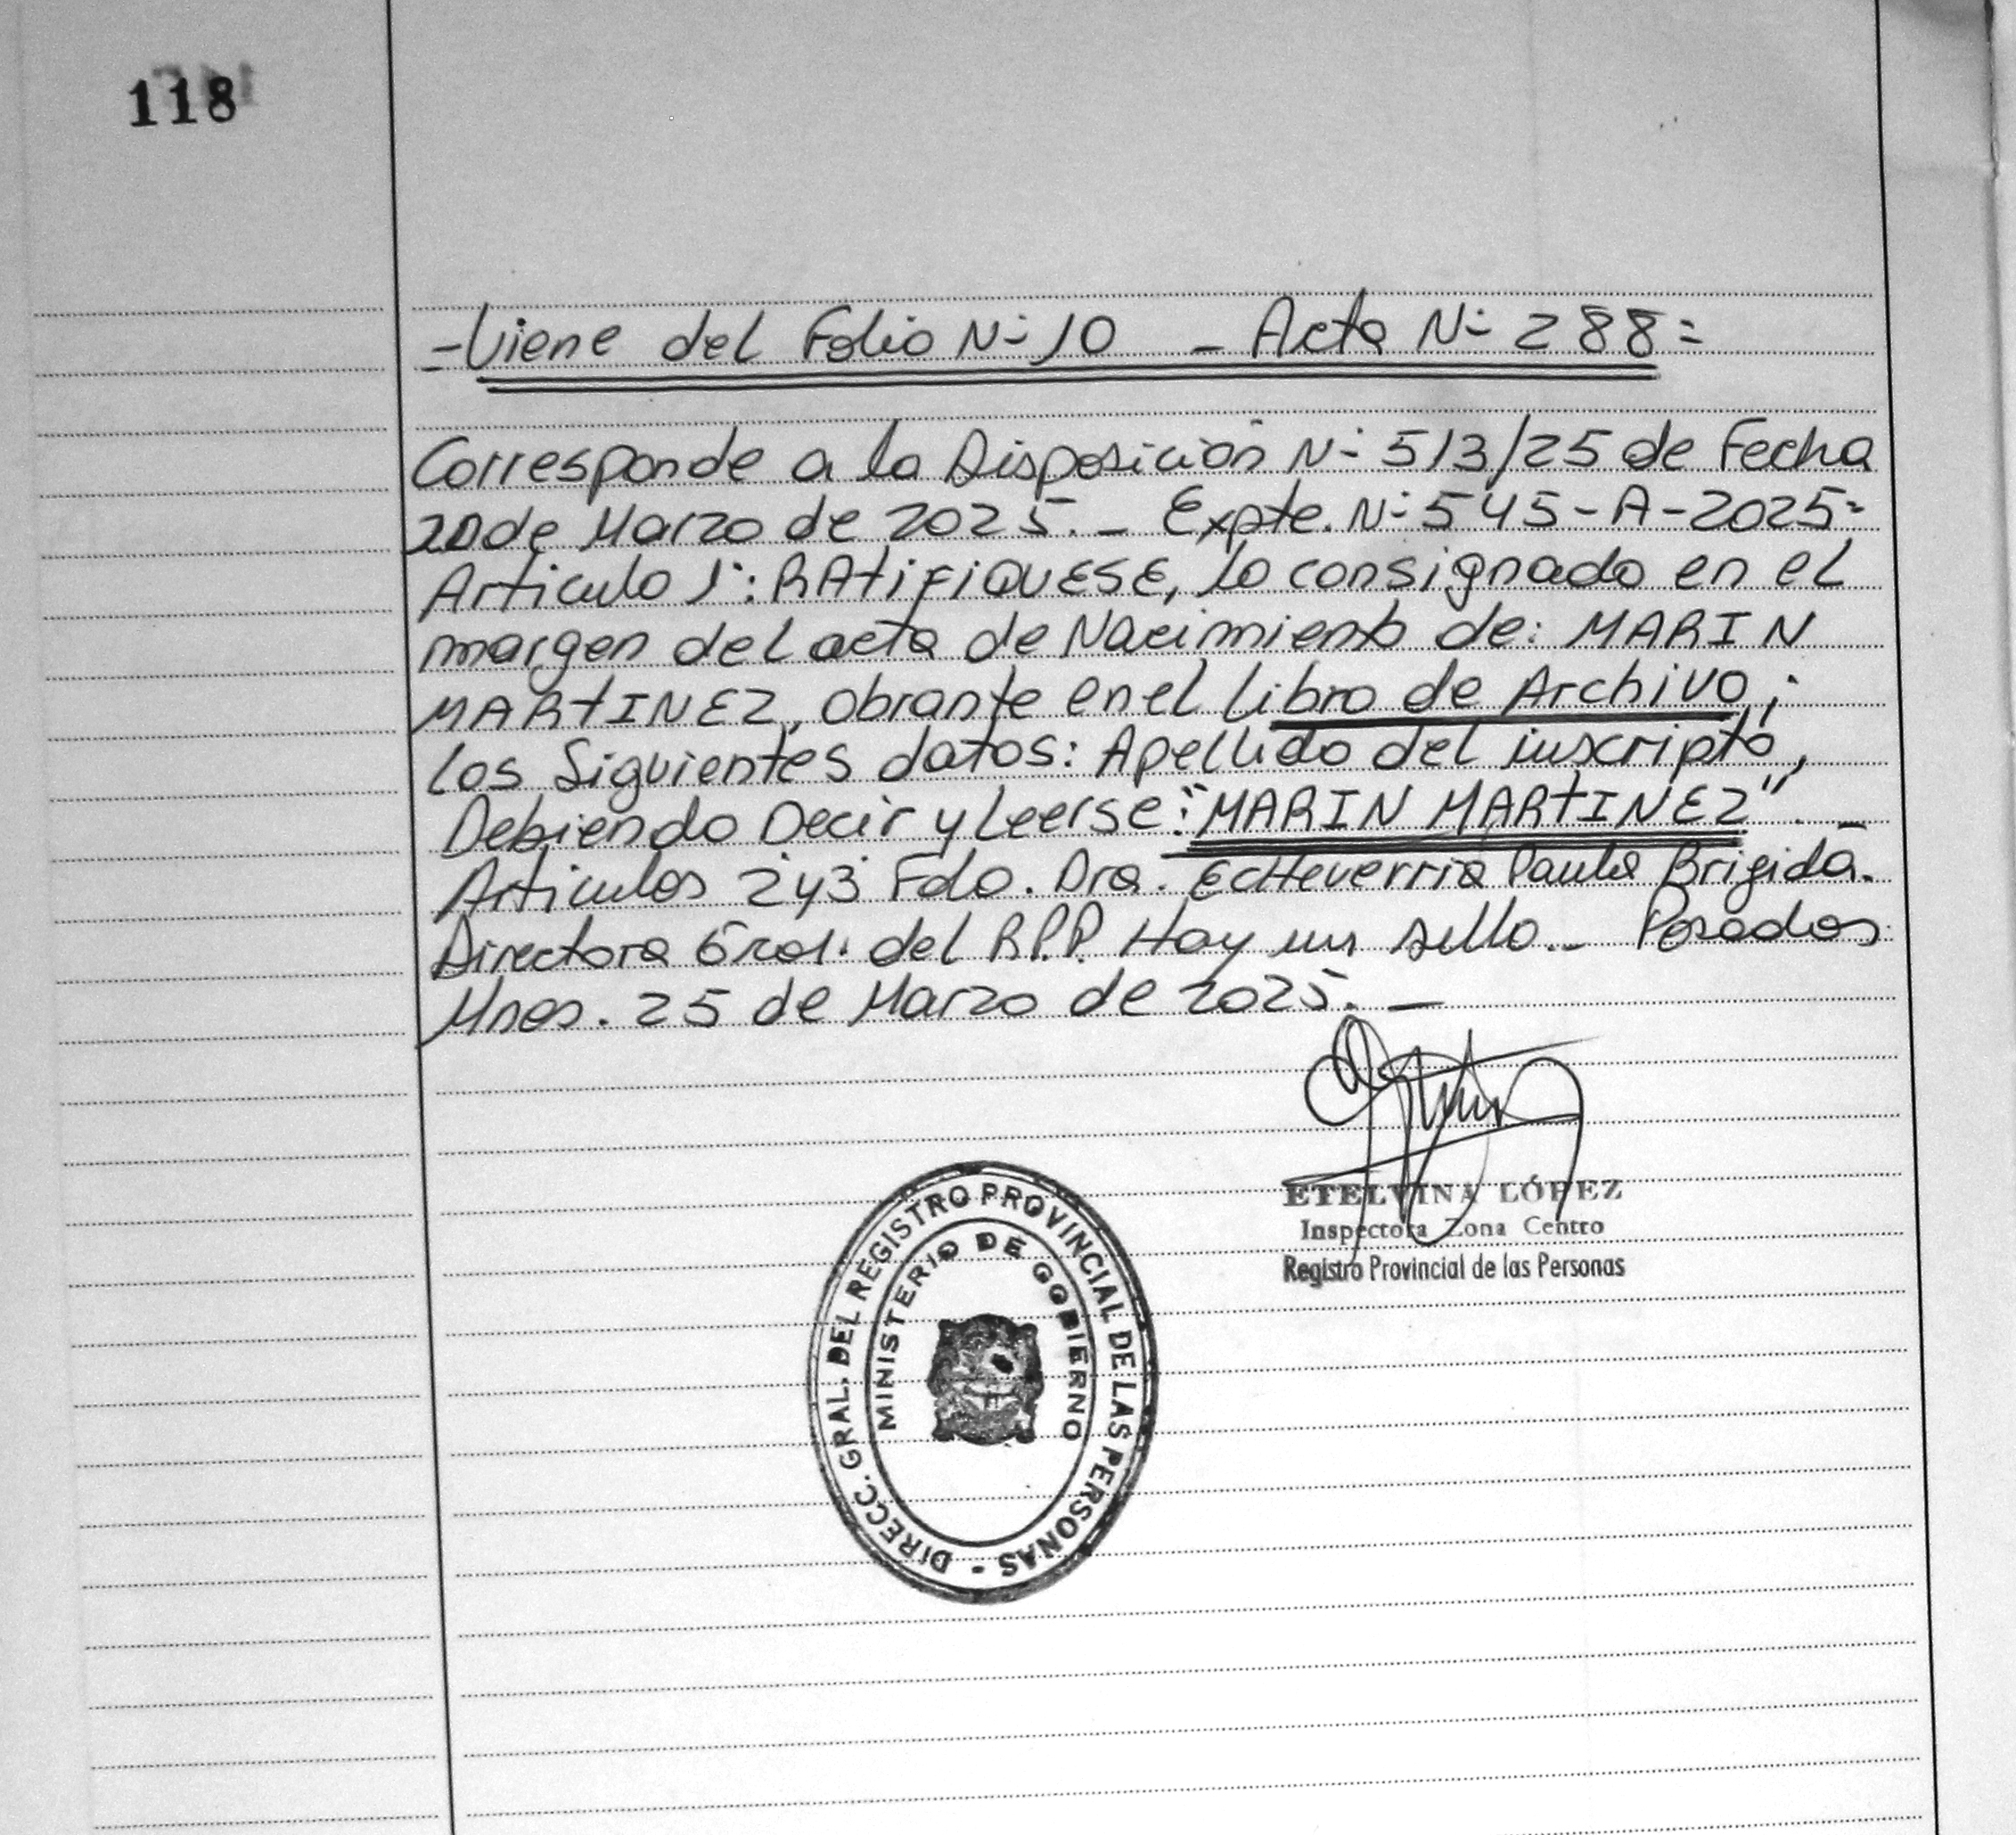 118
- Viene del Folio N- 10 - Acta N- 288=
Corresponde a la Disposición N- 513/25 de Fecha
20 de Marzo de 2025. - Expte. N- 545-A-2025-
Articulo 1°: RAtiFiQUESE, lo consignado en el
margen del acta de Nacimiento de: MARIN
MARtINEZ, obrante en el libro de Archivo;
los Siguientes datos: Apellido del inscripto,
Debiendo Decir y Leerse: "MARIN MARtINEZ". -
Articulos 2° y 3° Fdo. Dra. Echeverria Paula Brigida.
Directora Gral. del R.P.P. Hay un sello. - Posadas
Mnes. 25 de Marzo de 2025. -
ETELVINA LÓPEZ
Inspectora Zona Centro
Registro Provincial de las Personas
DIRECC. GRAL. DEL REGISTRO PROVINCIAL DE LAS PERSONAS -
MINISTERIO DE GOBIERNO